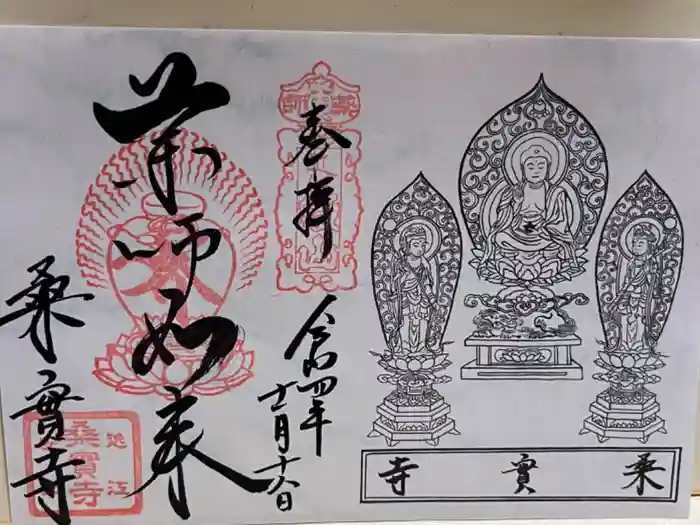 奉拝
薬師如来
令和四年
十一月十六日
桒實寺
近江
桑實寺
寺實桒